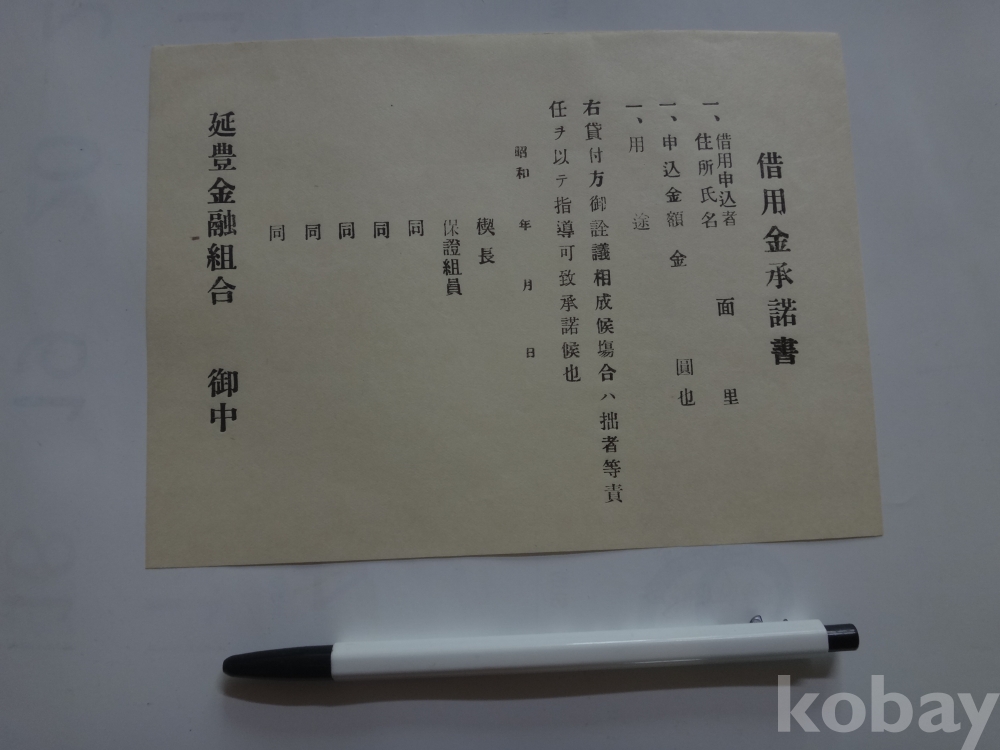 借用金承諾書
一、借用申込者住所氏名 面 里
一、申込金額 金 圓也
一、用 途
右貸付方御詮議相成候塲合ハ拙者等責
任ヲ以テ指導可致承諾候也
昭和 年 月 日
楔長
保證組員
同
同
同
同
同
延豊金融組合 御中
kobay